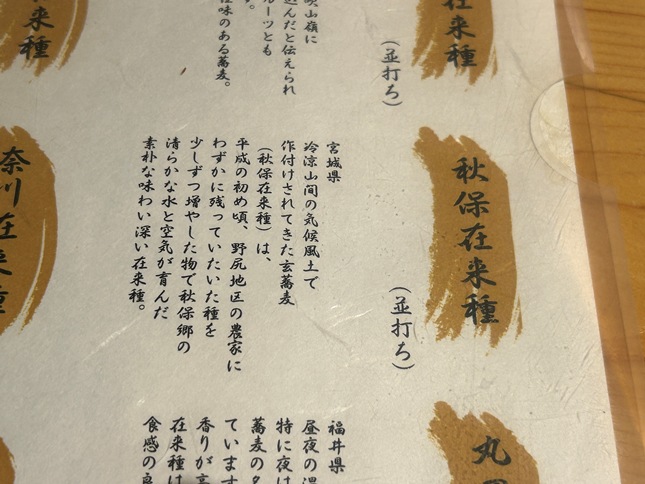 在来種
(並打ち)
山嶺に
込んだと伝えられ
ルーツとも
味のある蕎麦。
来種
秋保在来種
(並打ち)
宮城県
冷涼山間の気候風土で
作付けされてきた玄蕎麦
(秋保在来種)は、
平成の初め頃、野尻地区の農家に
わずかに残っていたいた種を
少しずつ増やした物で秋保郷の
清らかな水と空気が育んだ
素朴な味わい深い在来種。
奈川在来種
丸
福井県
昼夜の温
特に夜は
蕎麦の名
ています
香りが高
在来種は
食感の良